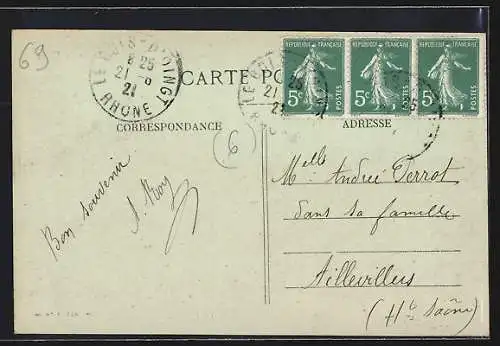 69
LE BOIS-D'OINGT
8 25
21 -6
21
RHÔNE
CARTE PO
RÉPUBLIQUE FRANÇAISE
5c
POSTES
RÉPUBLIQUE FRANÇAISE
5c
POSTES
RÉPUBLIQUE FRANÇAISE
5c
POSTES
CORRESPONDANCE
ADRESSE
(6)
Bon souvenir
Melle André Perrot
dans sa famille
Aillevillers
(Hte Saône)